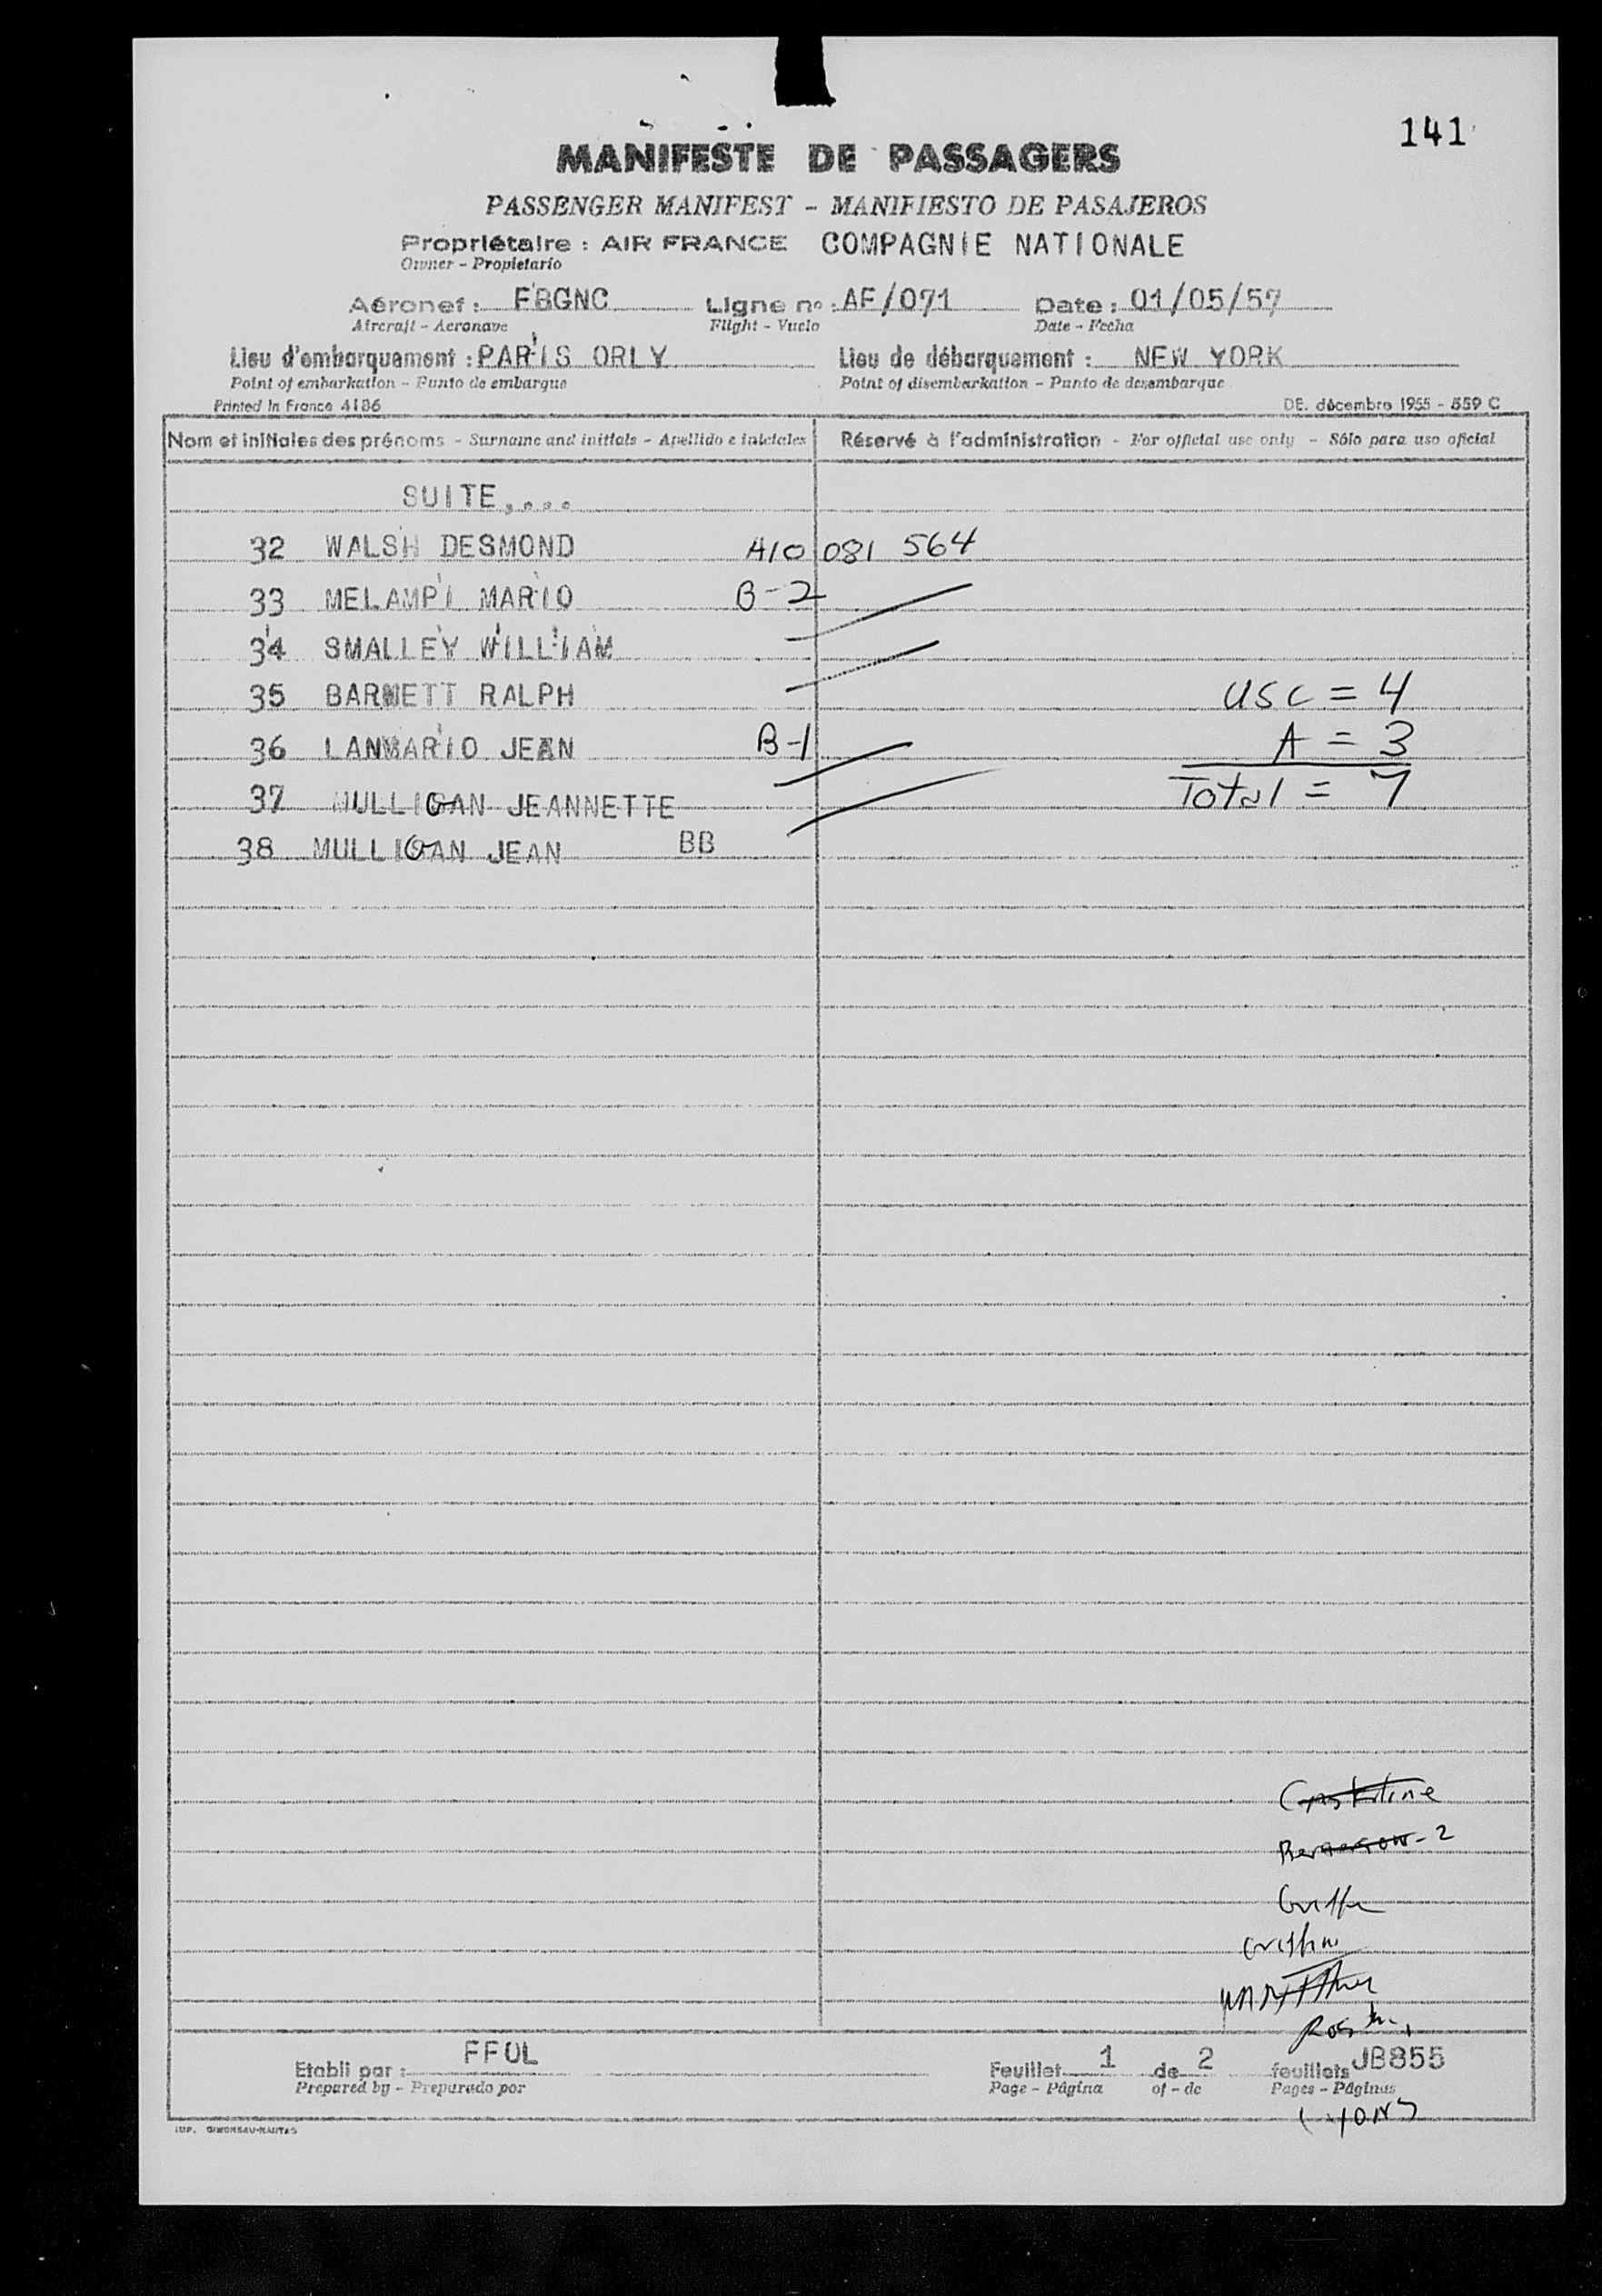 141
MANIFESTE DE PASSAGERS
PASSENGER MANIFEST - MANIFIESTO DE PASAJEROS
Propriétaire : AIR FRANCE COMPAGNIE NATIONALE
Owner - Propietario
Aéronef : FBGNC Ligne nº : AF/071 Date : 01/05/57
Aircraft - Aeronave Flight - Vuelo Date - Fecha
Lieu d'embarquement : PARIS ORLY Lieu de débarquement : NEW YORK
Point of embarkation - Punto de embarque Point of disembarkation - Punto de desembarque
Printed in France 4186 DE. décembre 1955 - 559 C
Nom et initiales des prénoms - Surname and initials - Apellido e iniciales Réservé à l'administration - For official use only - Sólo para uso oficial
SUITE,...
32 WALSH DESMOND A10 081 564
33 MELAMPI MARIO B-2
34 SMALLEY WILLIAM
35 BARNETT RALPH USC = 4
36 LANMARIO JEAN B-1 A = 3
37 MULLIGAN JEANNETTE Total = 7
38 MULLIGAN JEAN BB
Etabli par : FFOL Feuillet 1 de 2 feuillets JB855
Prepared by - Preparado por Page - Página of - de Pages - Páginas
Lyons